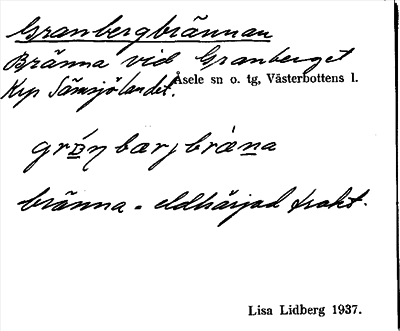 Granbergbrännan
Bränna vid Granberget
Krp Sämsjölandet. Åsele sn o. tg, Västerbottens l.
bränna = eldhärjad trakt.
Lisa Lidberg 1937.